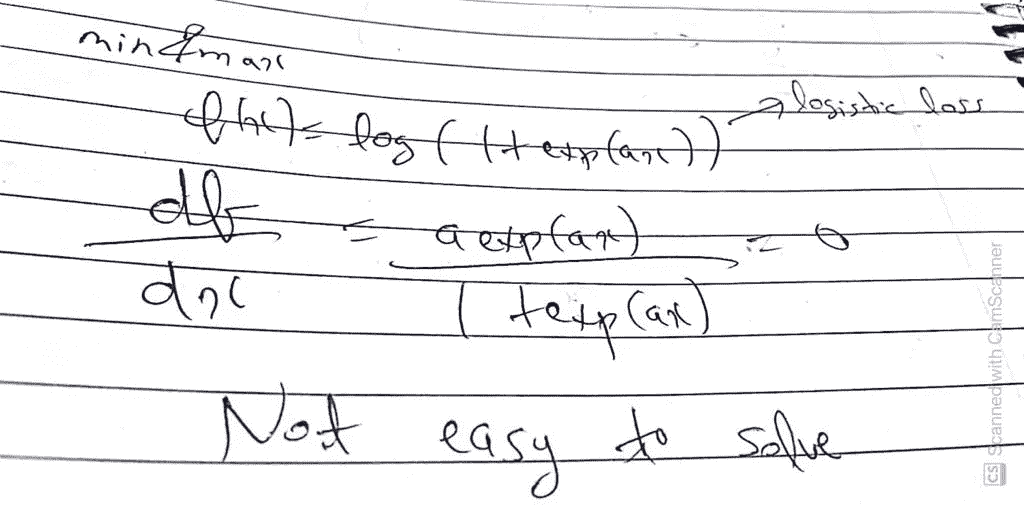 min & max
f(x) = log(1+exp(ax)) → logistic loss
df/dx = a exp(ax) / 1+exp(ax) = 0
Not easy to solve
CS Scanned with CamScanner